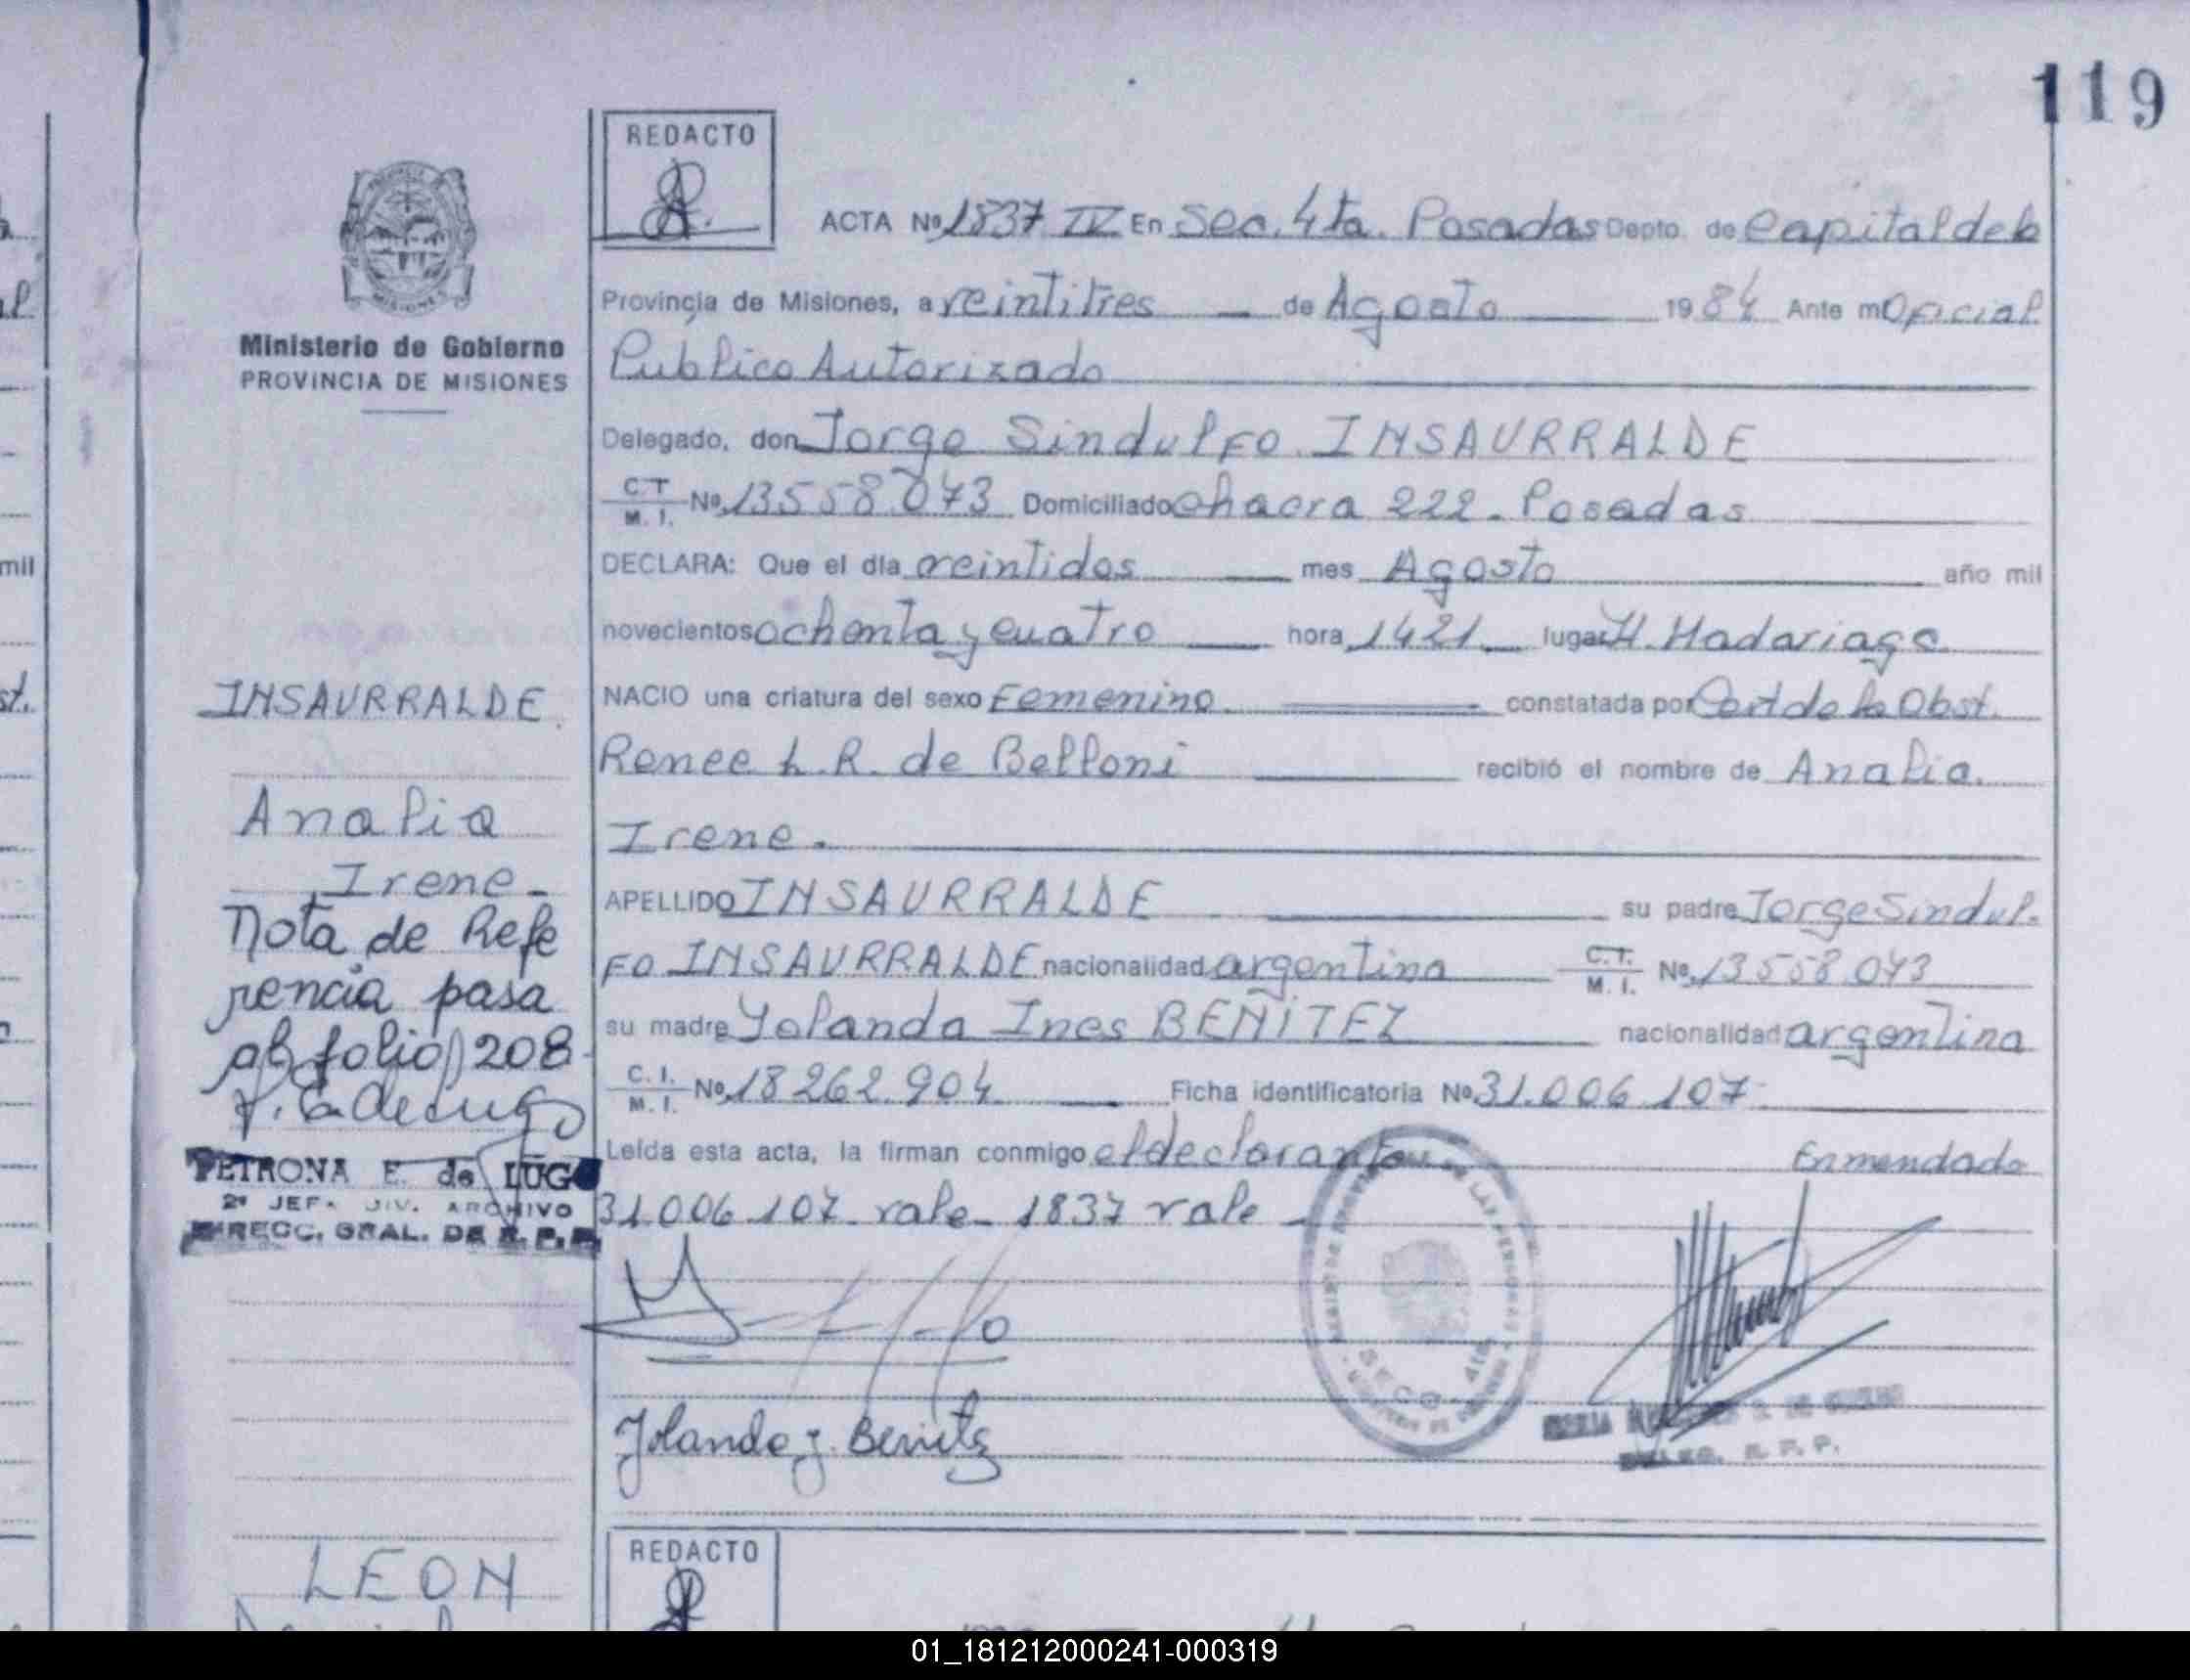 119
REDACTO
ACTA Nº 1837 IV En Sec. 4ta. Posadas Depto. de Capital de la
Provincia de Misiones, a veintitres de Agosto 1984 Ante mi Oficial
Publico Autorizado
Delegado, don Jorge Sindulfo INSAURRALDE
C.T. M. I. Nº 13558073 Domiciliado Chacra 222 - Posadas
DECLARA: Que el día veintidos mes Agosto año mil
novecientos ochenta y cuatro hora 1421 lugar H. Madariaga
NACIO una criatura del sexo Femenino constatada por Cert de la Obst.
Renee L. R. de Belloni recibió el nombre de Analia
Irene.
APELLIDO INSAURRALDE su padre Jorge Sindul-
fo INSAURRALDE nacionalidad argentina C.T. M. I. Nº 13558.073
su madre Yolanda Ines BEÑITEZ nacionalidad argentina
C. I. M. I. Nº 18262.904 Ficha identificatoria Nº 31.006.107
Leída esta acta, la firman conmigo el declarante Enmendado
31.006.107 vale - 1837 vale
Yolanda I. Benitez
SECC. 4ta
DELEG. R. P. P.
Ministerio de Gobierno
PROVINCIA DE MISIONES
INSAURRALDE
Analia
Irene -
Nota de Refe
rencia pasa
al folio 208
PETRONA E. de LUGO
2º JEF. DIV. ARCHIVO
DIRECC. GRAL. DE R. P. P.
LEON
REDACTO
mil
st.
01_181212000241-000319